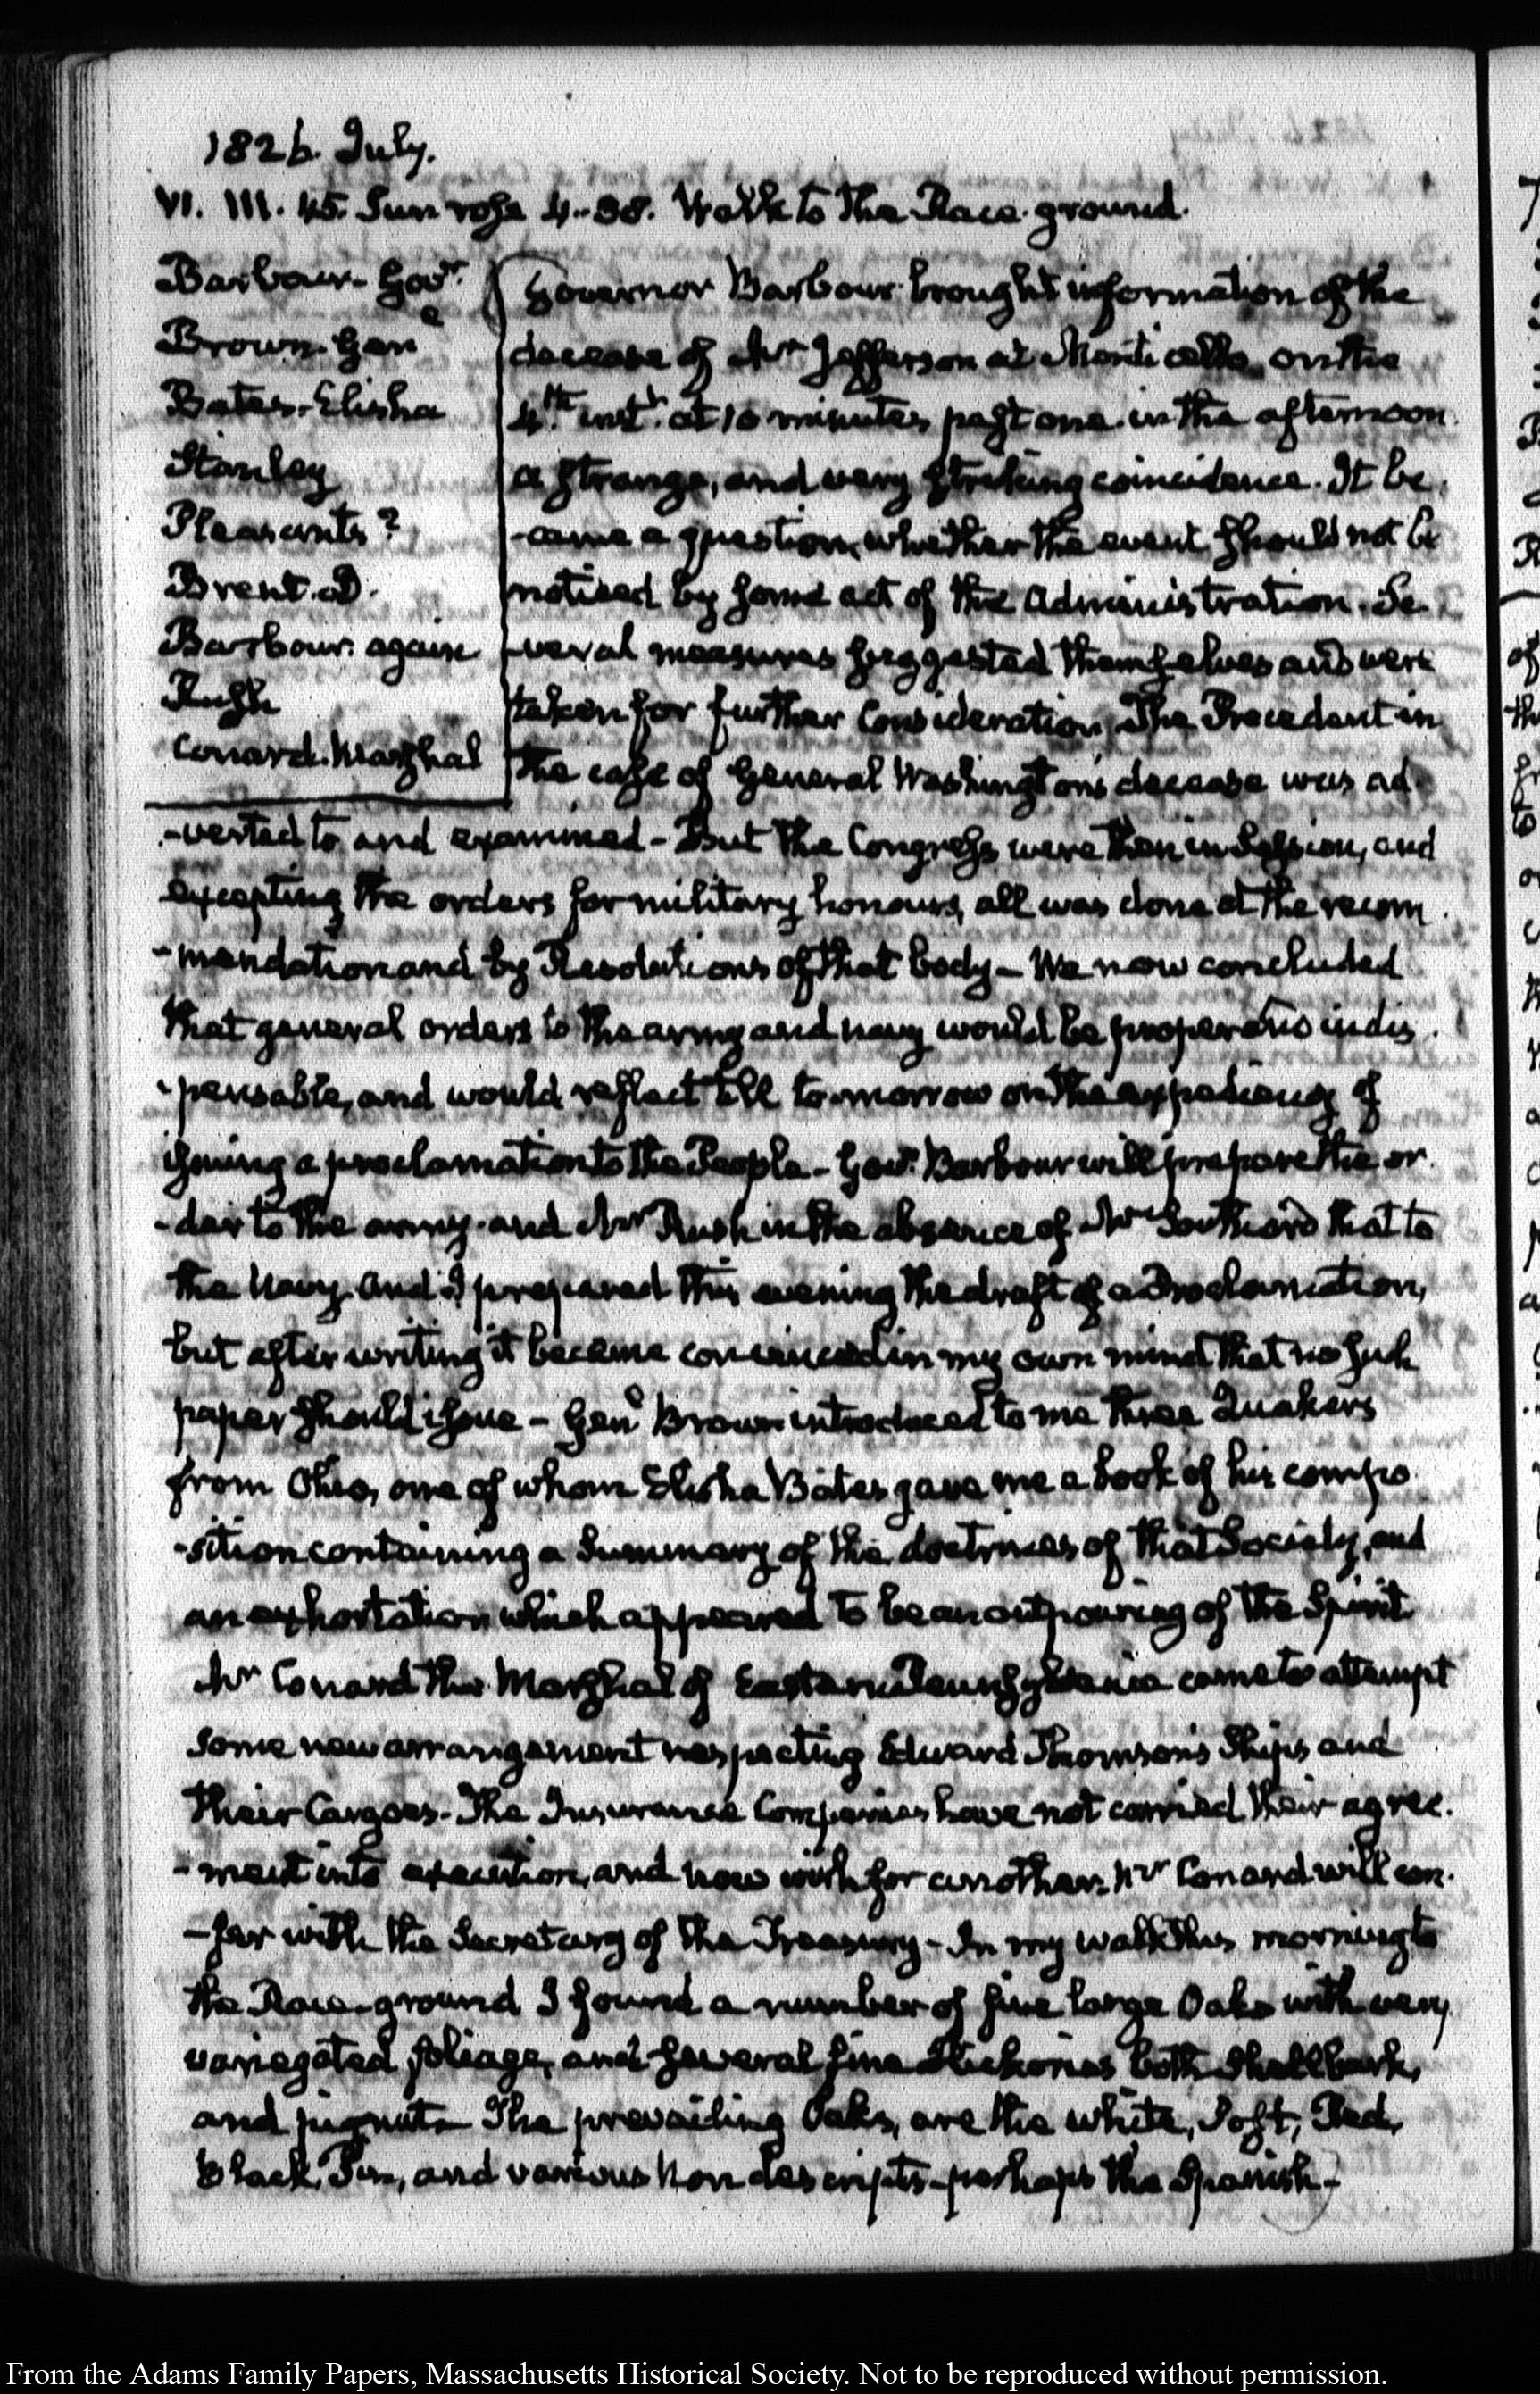 1826. July.
VI. III. 45. Sun rose 4-38. Walk to the Race-ground.
Barbour- Govr.
Brown. Gen
Bates- Elisha
Stanley
Pleasants?
Brent. D.
Barbour. again
Rush
Conard. Marshal
Governor Barbour brought information of the
decease of Mr Jefferson at Monticello, on the
4th. inst. at 10 minutes past one in the afternoon
a strange, and very striking coincidence. It be
-came a question, whether the event should not be
noticed by some act of the Administration. Se
-veral measures suggested themselves and were
taken for further Consideration. The Precedent in
the case of General Washington's decease was ad
-verted to and examined- But the Congress were then in Session, and
excepting the orders for military honours, all was done at the recom
-mendation and by Resolutions of that body- We now concluded
that general orders to the army and navy would be proper and indis
-pensable, and would reflect till to-morrow on the expediency of
issuing a proclamation to the People- Govr. Barbour will prepare the or
-der to the army- and Mr Rush in the absence of Mr Southard that to
the Navy. And I prepared this evening the draft of a Proclamation,
but after writing it became convinced in my own mind that no such
paper should issue- Genl Brown introduced to me three Quakers
from Ohio, one of whom Elisha Bates gave me a book of his compo
-sition containing a Summary of the doctrines of that Society, and
an exhortation which appeared to be an outpouring of the Spirit
Mr Conard the Marshal of Eastern Pennsylvania came to attempt
some new arrangement respecting Edward Thomson's Ships and
their Cargoes- The Insurance Companies have not carried their agree.
-ment into execution, and now wish for another. Mr Conard will con.
-fer with the Secretary of the Treasury- In my walk this morning to
the Race-ground I found a number of fine large Oaks with very
variegated foliage, and several fine Hickories both Shellbark,
and pignut- The prevailing Oaks, are the white, Post, Red,
Black, Pin, and various non descripts- perhaps the Spanish-
From the Adams Family Papers, Massachusetts Historical Society. Not to be reproduced without permission.